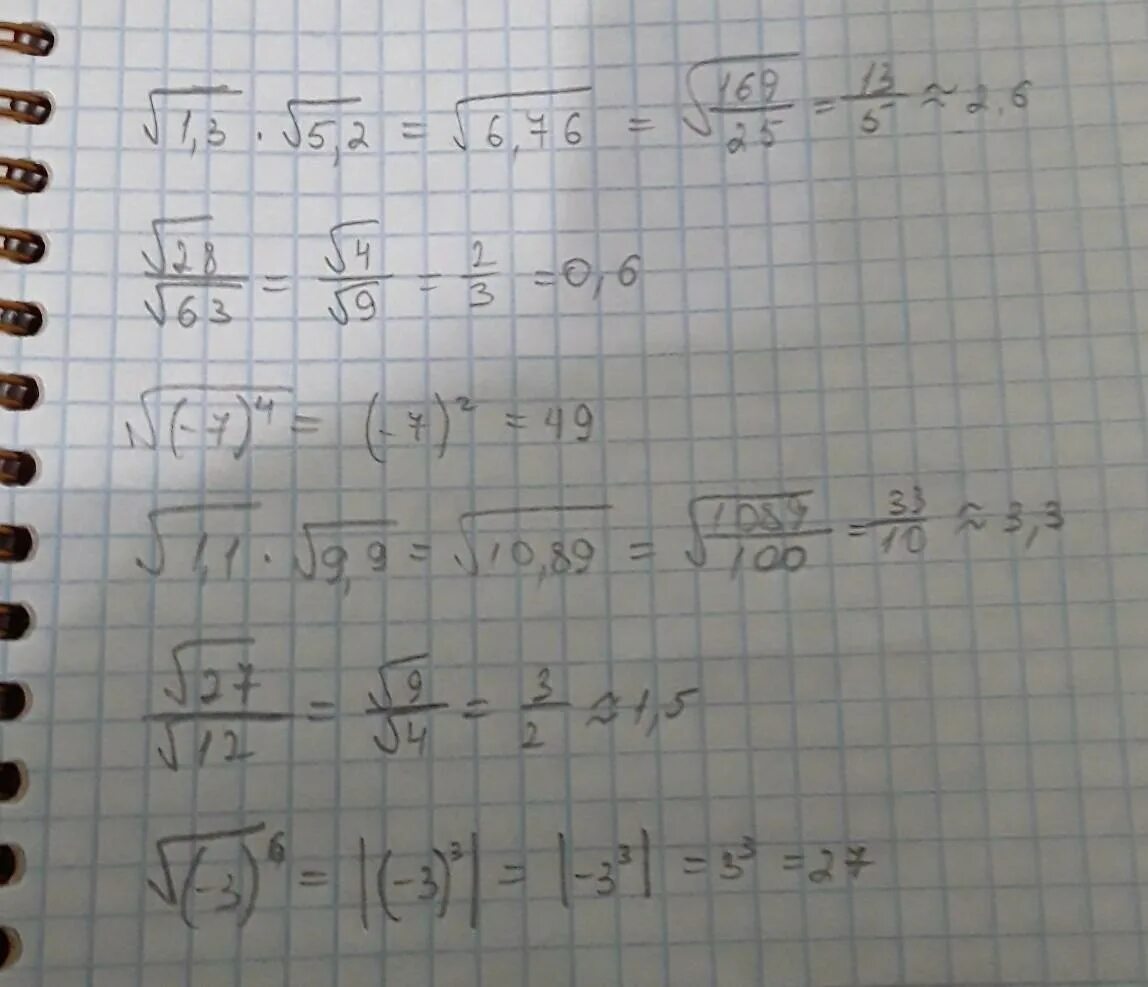 √1,3 · √5,2 = √6,76 = √169/25 = 13/5 ≈ 2,6
√28/√63 = √4/√9 = 2/3 = 0,6
√(-7)⁴ = (-7)² = 49
√1,1 · √9,9 = √10,89 = √1089/100 = 33/10 ≈ 3,3
√27/√12 = √9/√4 = 3/2 ≈ 1,5
√(-3)⁶ = |(-3)³| = |-3³| = 3³ = 27